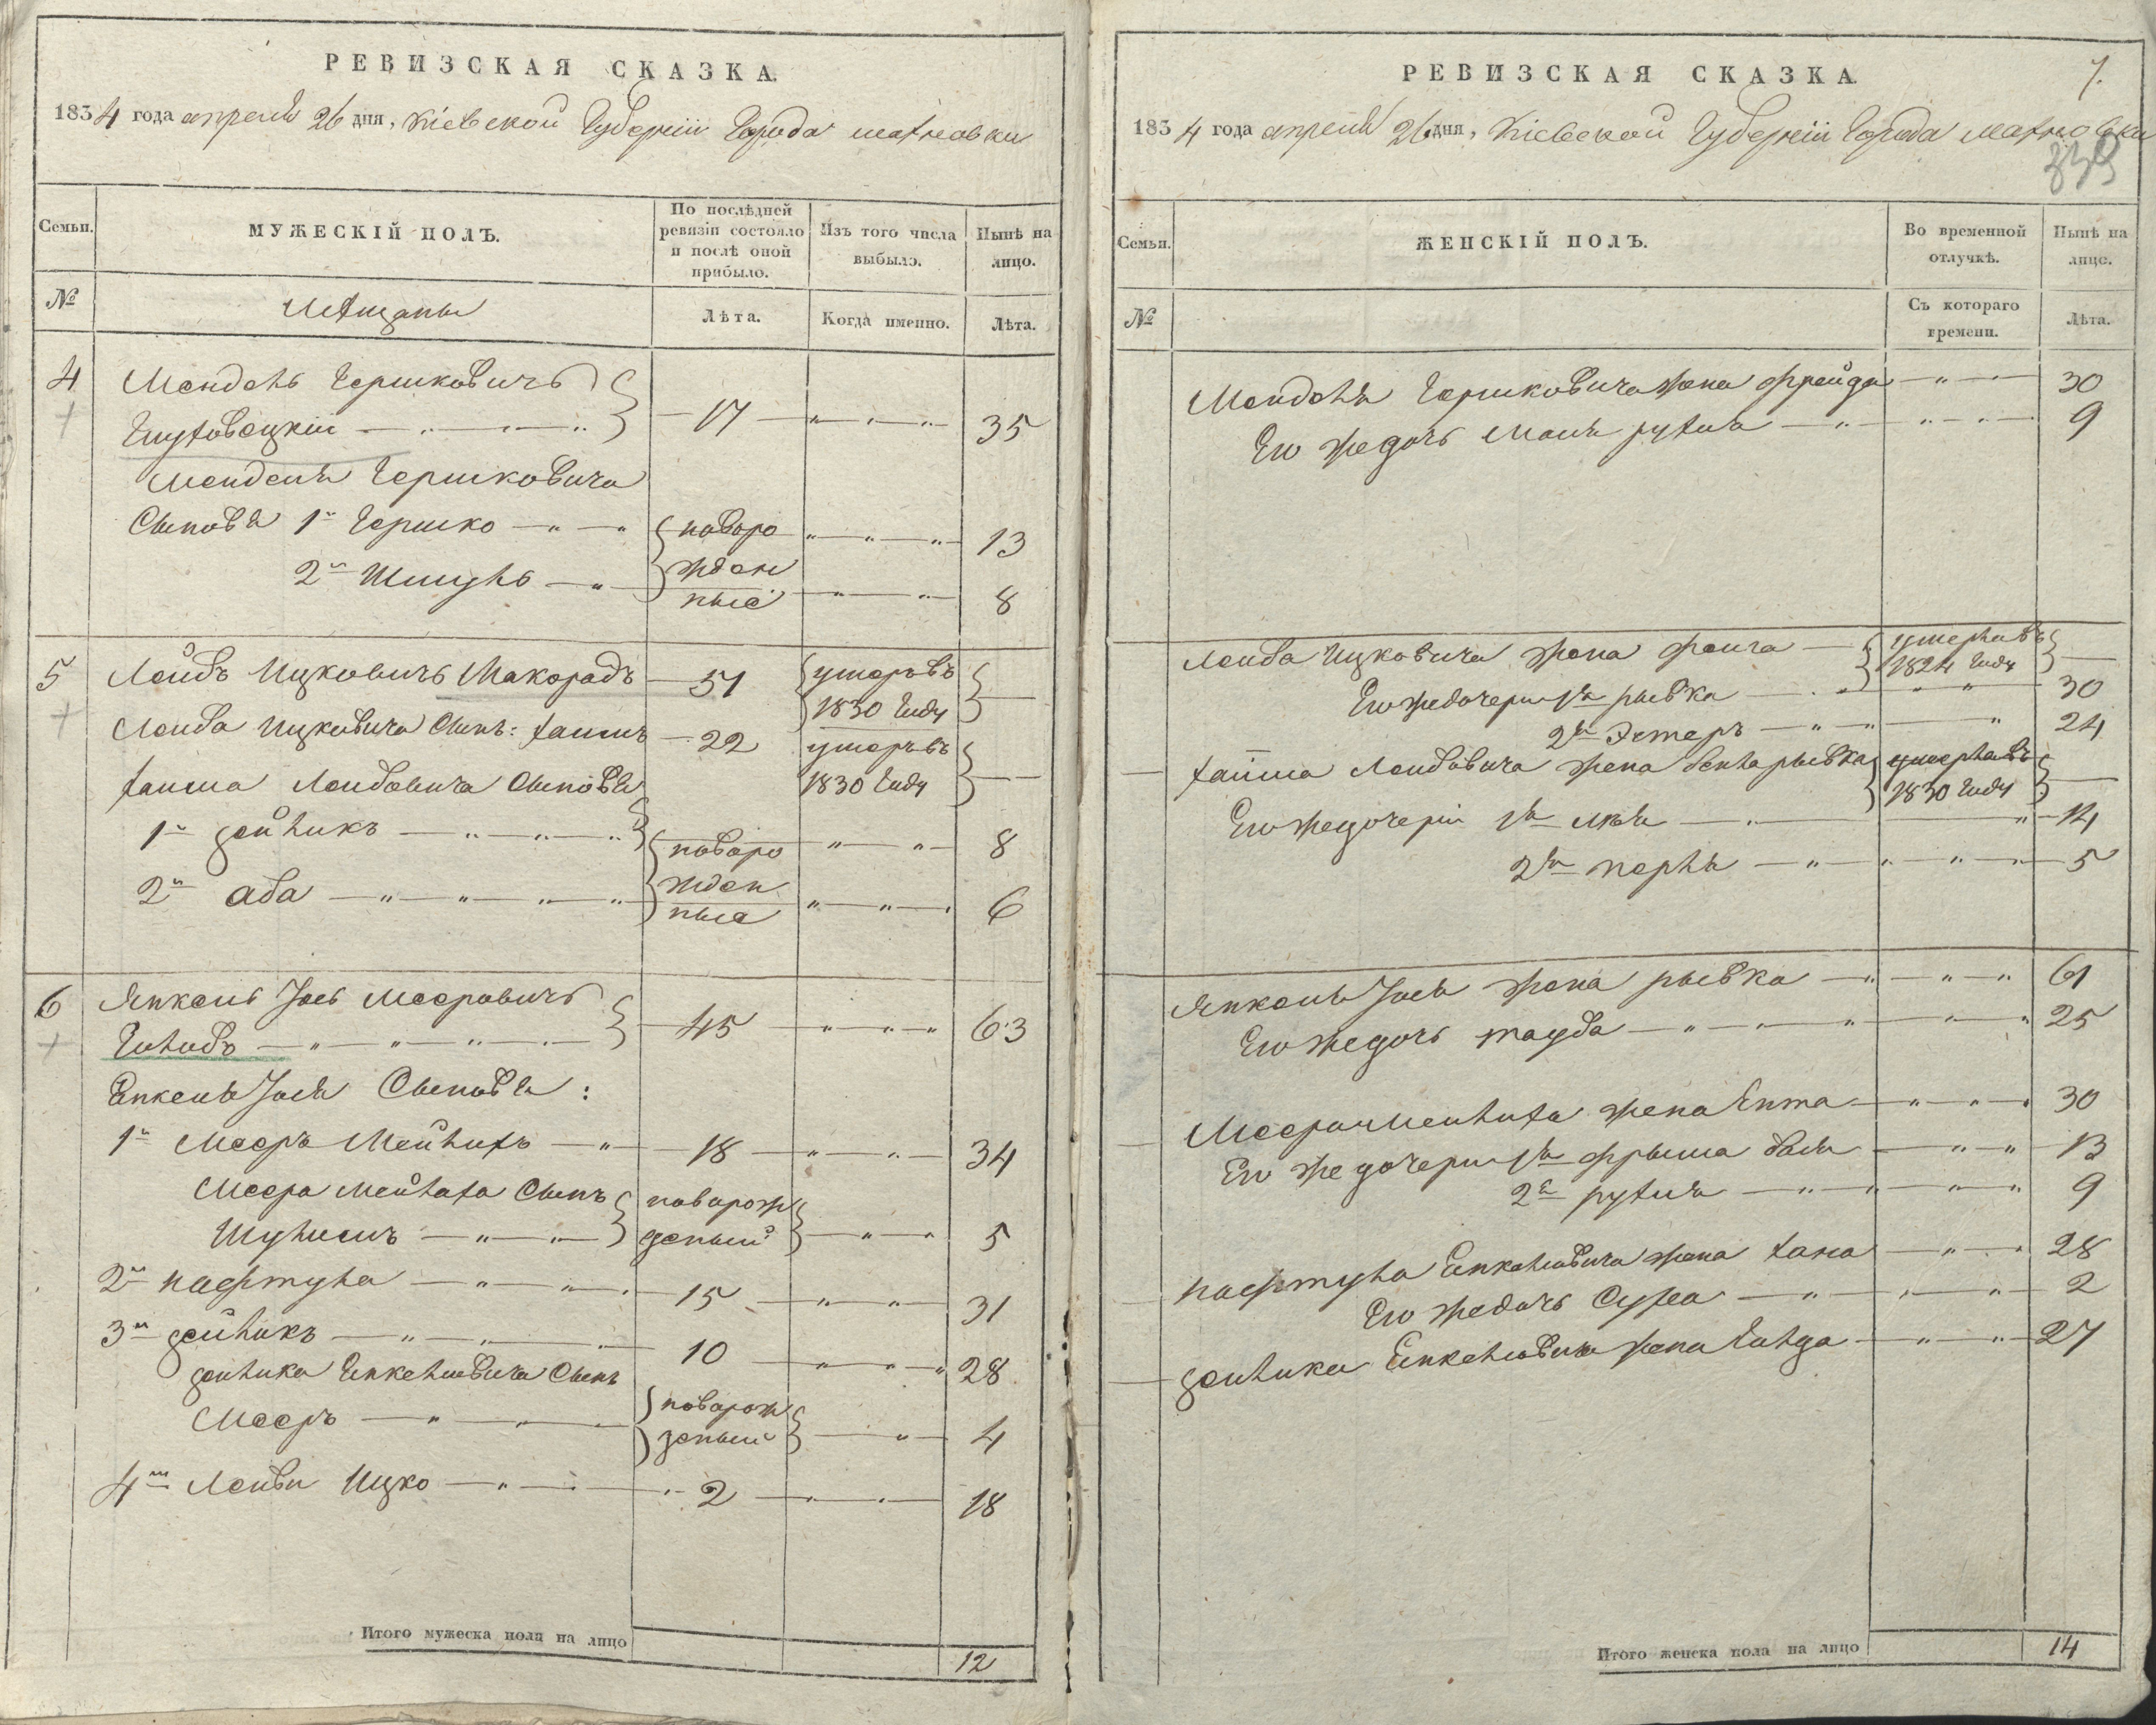 РЕВИЗСКАЯ СКАЗКА.
1834 года апреля 26 дня, Кіевской Губерніи Города махновки
Семьи.
МУЖЕСКІЙ ПОЛЪ.
По послѣдней ревизіи состояло и послѣ оной прибыло.
Изъ того числа выбыло.
Нынѣ на лицо.
№
Мѣщаны
Лѣта.
Когда именно.
Лѣта.
4 Мендель Гершковичъ
17 35
Менделя Гершковича
Сыновья 1й Гершко новоро 13
2й Шмуль жден
ные 8
5 Лейбъ Ицковичъ Макорадъ 51 умеръ въ
1830 Году
Лейба Ицковича Сынъ: хаимъ 22 умеръ въ
1830 Году
хаима Лейбовича Сыновья
1й зейликъ новоро 8
2й аба жден
ные 6
6 Янкель Іось Мееровичъ
Голубъ 45 63
Енкеля Іося Сыновья:
1й Мееръ Мейлихъ 18 34
Меера Мейлаха Сынъ новорож
Шулимъ деный 5
2й нафтула 15 31
3й зейликъ 10 28
зейлика Енкелиовича Сынъ
Мееръ новорож
деный 4
4й Лейви Ицко 2 18
Итого мужеска пола на лицо
12
РЕВИЗСКАЯ СКАЗКА.
7.
1834 года апреля 26 дня, Кіевской Губерніи Города махновки
339
Семьи.
ЖЕНСКІЙ ПОЛЪ.
Во временной отлучкѣ.
Нынѣ на лицо.
№
Съ котораго времени.
Лѣта.
Менделя Гершковича жена фрейда 30
Его же дочь Маля рухля 9
Лейба Ицковича жена фейга умерла въ
1824 Году
Его же дочери 1я рывка 30
2я Эстеръ 24
хаима Лейбовича жена бейла рывка умерла въ
1830 Году
Его же дочери 1я лея 14
2я перль 5
Янкеля Іося жена рывка 61
Его же дочь тауба 25
Меера Мейлиха жена Ента 30
Его же дочери 1я фрыма бася 13
2я рухля 9
нафтула Енкелиовича жена хана 28
Его же дочь Сура 2
зейлика Енкелиовича жена Голда 27
Итого женска пола на лицо
14